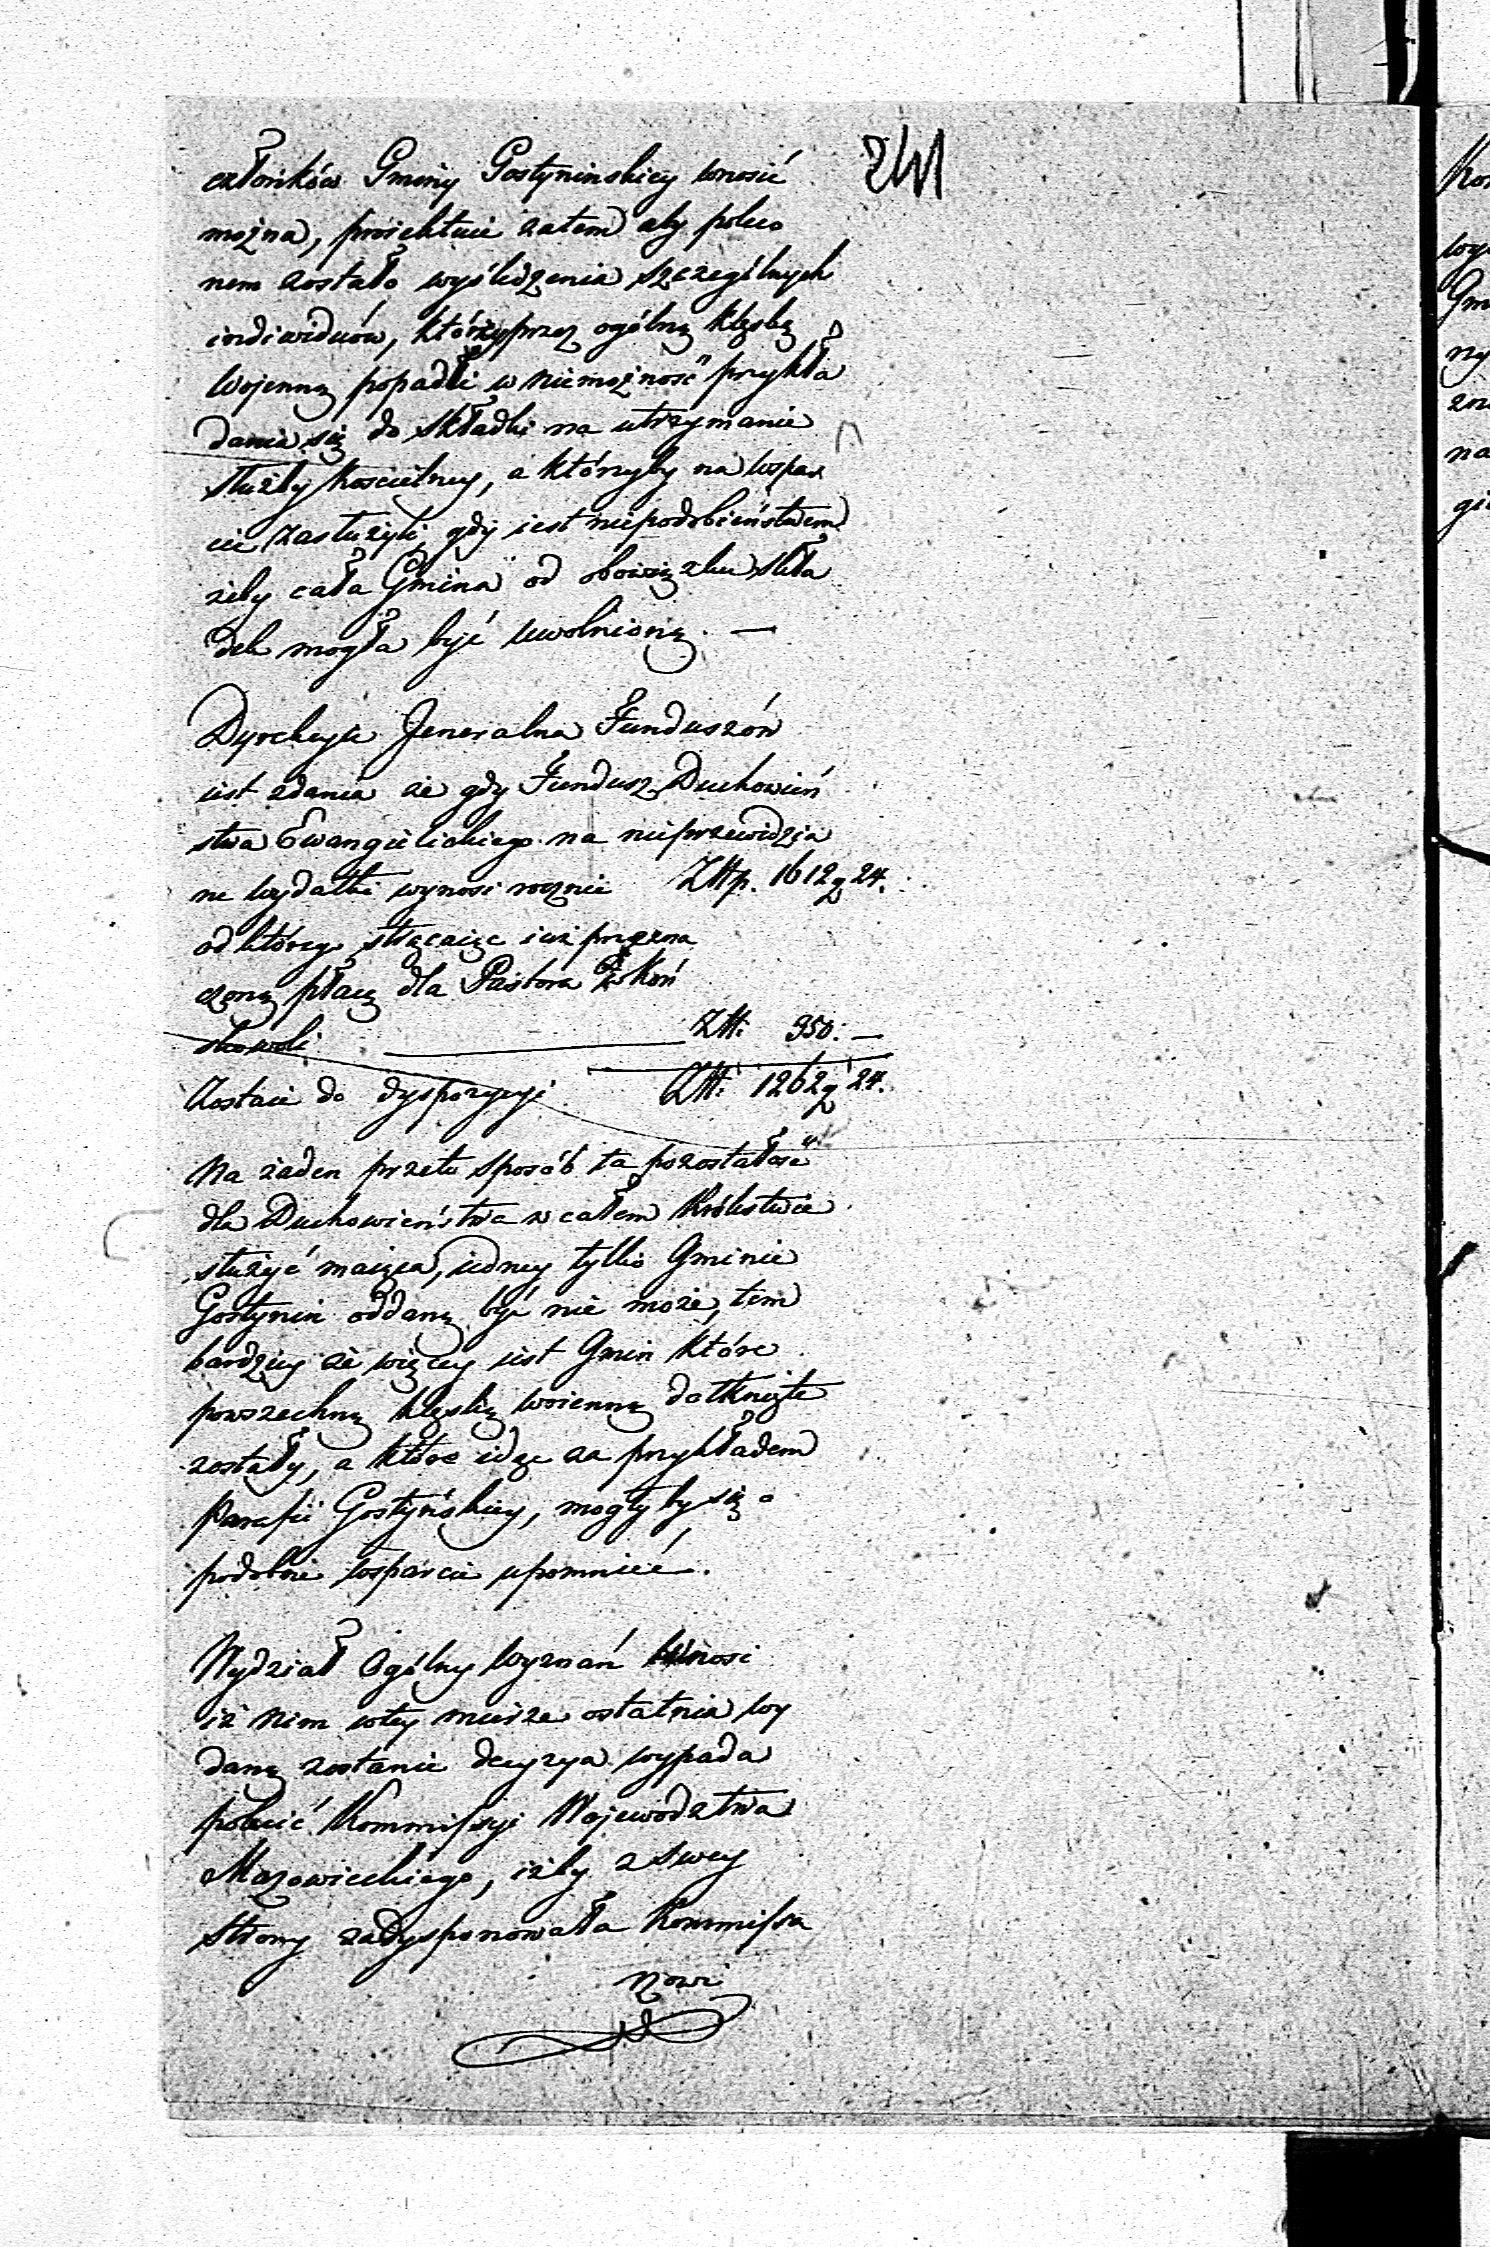 241
członków Gminy Gostyninskiey wnosić
można, proiektuie zatem aby poleco
nem zostało wyśledzenia szczególnych
indiwiduów, którzy przez ogólną klęskę
wojenną popadli w niemożność przykła
dania się do składki na utrzymanie
służby kościelney, a którzyby na wspar
cie zasłużyli, gdy iest niepodobieństwem
żeby cała Gmina od obowiązku skła
dek mogła być uwolnioną. —
Dyrekcyia Jeneralna Funduszów
iest zdania że gdy Fundusz Duchowień
stwa Ewangielickiego na nieprzewidzia
ne wydatki wynosi rocznie Złtp. 1612 g 24.
od którego strącaiąc iuż przezna
czoną płacę dla Pastora
Złt: 350: —
Zostaie do dyspozycyi Złt: 1262 g 24.
Na żaden przeto sposób ta pozostałość
dla Duchowieństwa w całem Królestwie
służyć maiąca, iedney tylko Gminie
Gostynin oddaną być nie może, tem
bardziey że więcey iest Gmin które
powszechną klęską woienną dotknięte
zostały, a które idąc za przykładem
Parafii Gostyńskiey, mogłyby się o
podobne wsparcie upomnieć.
Wydział Ogólny Wyznań wnosi
iż nim w tey mierze ostatnia wy
daną zostanie decyzya wypada
polecić Kommissyi Województwa
Mazowieckiego, iżby z swey
strony zadysponowała Kommissa
rzowi